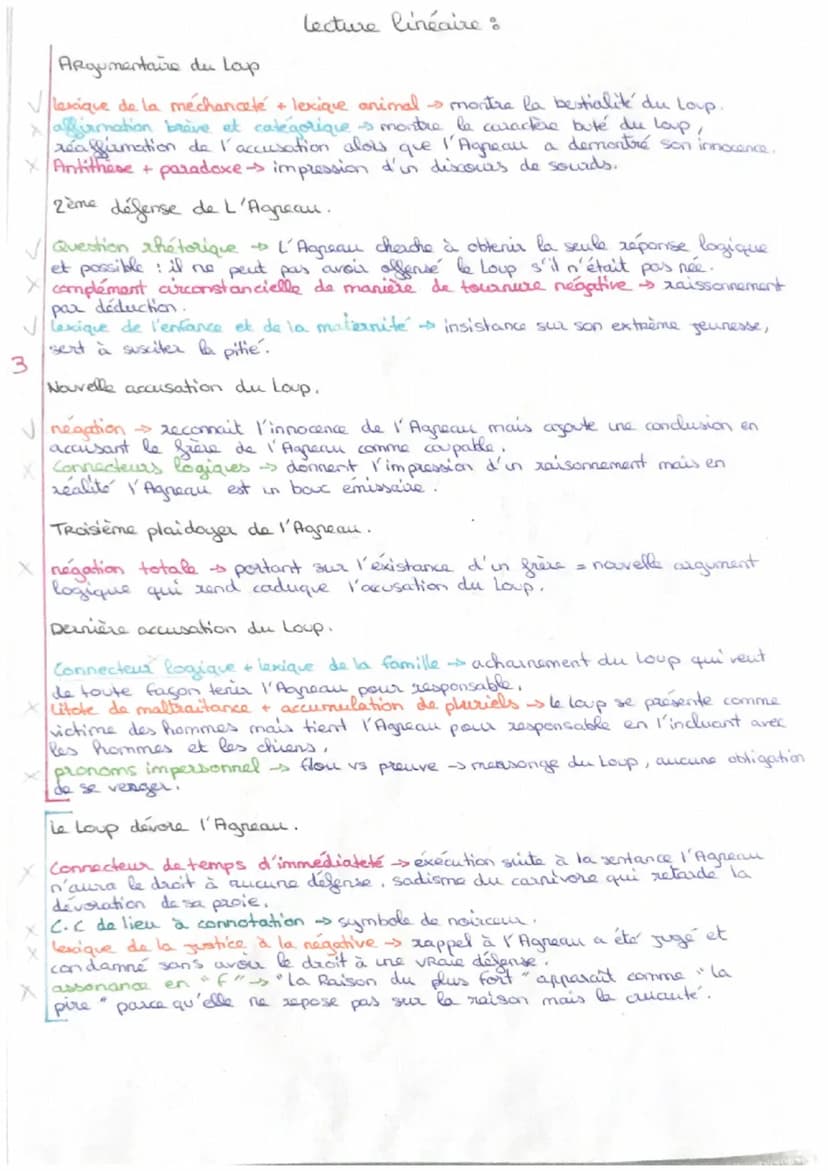 Lecture linéaire :
Argumentaire du Loup
lexique de la méchanceté + lexique animal → montre la bestialité du Loup.
affirmation brève et catégorique → montre le caractère buté du Loup,
réaffirmation de l'accusation alors que l'Agneau a demontré son innocence.
Antithèse + paradoxe → impression d'un discours de sourds.
2ème défense de L'Agneau.
Question rhétorique → L'Agneau cherche à obtenir la seule réponse logique
et possible : il ne peut pas avoir offensé le Loup s'il n'était pas née.
complément circonstancielle de manière de tournure négative → raissonnement
par déduction.
lexique de l'enfance et de la maternité → insistance sur son extrème jeunesse,
sert à susciter la pitié.
3
Nouvelle accusation du Loup.
négation → reconnait l'innocence de l'Agneau mais ajoute une conclusion en
accusant le frère de l'Agneau comme coupable.
Connecteurs logiques → donnent l'impression d'un raisonnement mais en
réalité l'Agneau est un bouc émissaire.
Troisième plaidoyer de l'Agneau.
négation totale → portant sur l'éxistance d'un frère = nouvelle argument
logique qui rend caduque l'accusation du Loup.
Dernière accusation du Loup.
Connecteur logique + lexique de la famille → acharnement du loup qui veut
de toute façon tenir l'Agneau pour responsable.
litote de maltraitance + accumulation de pluriels → le loup se présente comme
victime des hommes mais tient l'Agneau pour responsable en l'incluant avec
les hommes et les chiens.
pronoms impersonnel → flou vs preuve → mensonge du Loup, aucune obligation
de se venger.
Le Loup dévore l'Agneau.
Connecteur de temps d'immédiateté → éxécution suite à la sentance l'Agneau
n'aura le droit à aucune défense. sadisme du carnivore qui retarde la
dévoration de sa proie.
C.C de lieu à connotation → symbole de noirceur.
lexique de la justice à la négative → rappel à l'Agneau a été jugé et
condamné sans avoir le droit à une vraie défense.
assonance en "f" → "la Raison du plus fort" apparaît comme "la
pire" parce qu'elle ne repose pas sur la raison mais la cruauté.